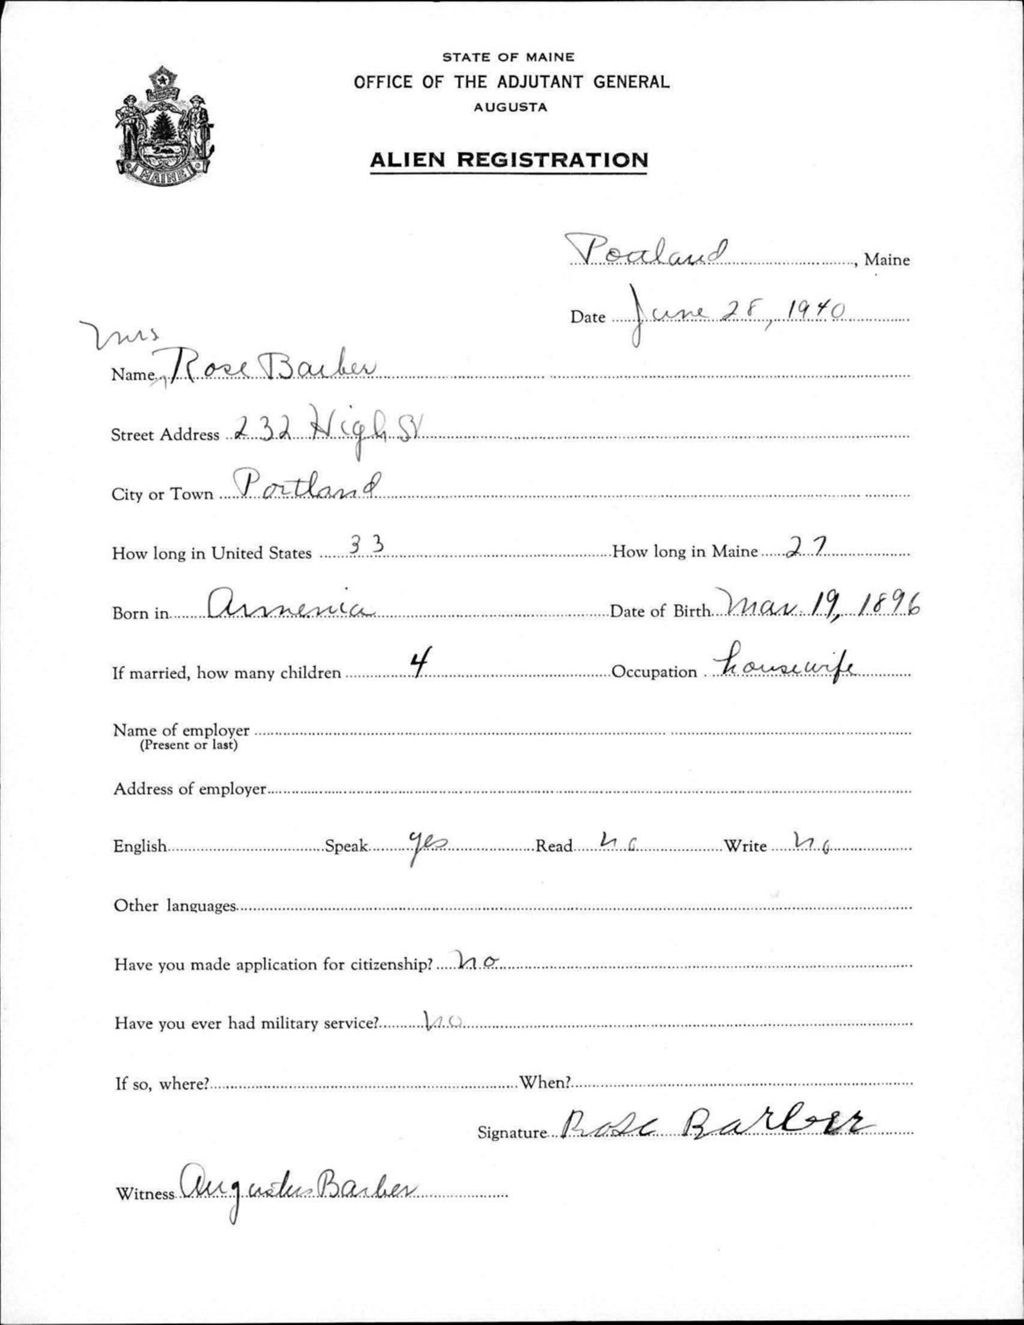 STATE OF MAINE
OFFICE OF THE ADJUTANT GENERAL
AUGUSTA
ALIEN REGISTRATION
MAINE
Portland, Maine
Date June 28, 1940
Mrs
Name Rose Barber
Street Address 232 High St
City or Town Portland
How long in United States 33 How long in Maine 27
Born in Armenia Date of Birth Mar 19, 1896
If married, how many children 4 Occupation housewife
Name of employer
(Present or last)
Address of employer
English Speak yes Read no Write no
Other languages
Have you made application for citizenship? no
Have you ever had military service? no
If so, where? When?
Signature Rose Barber
Witness Augustus Barber